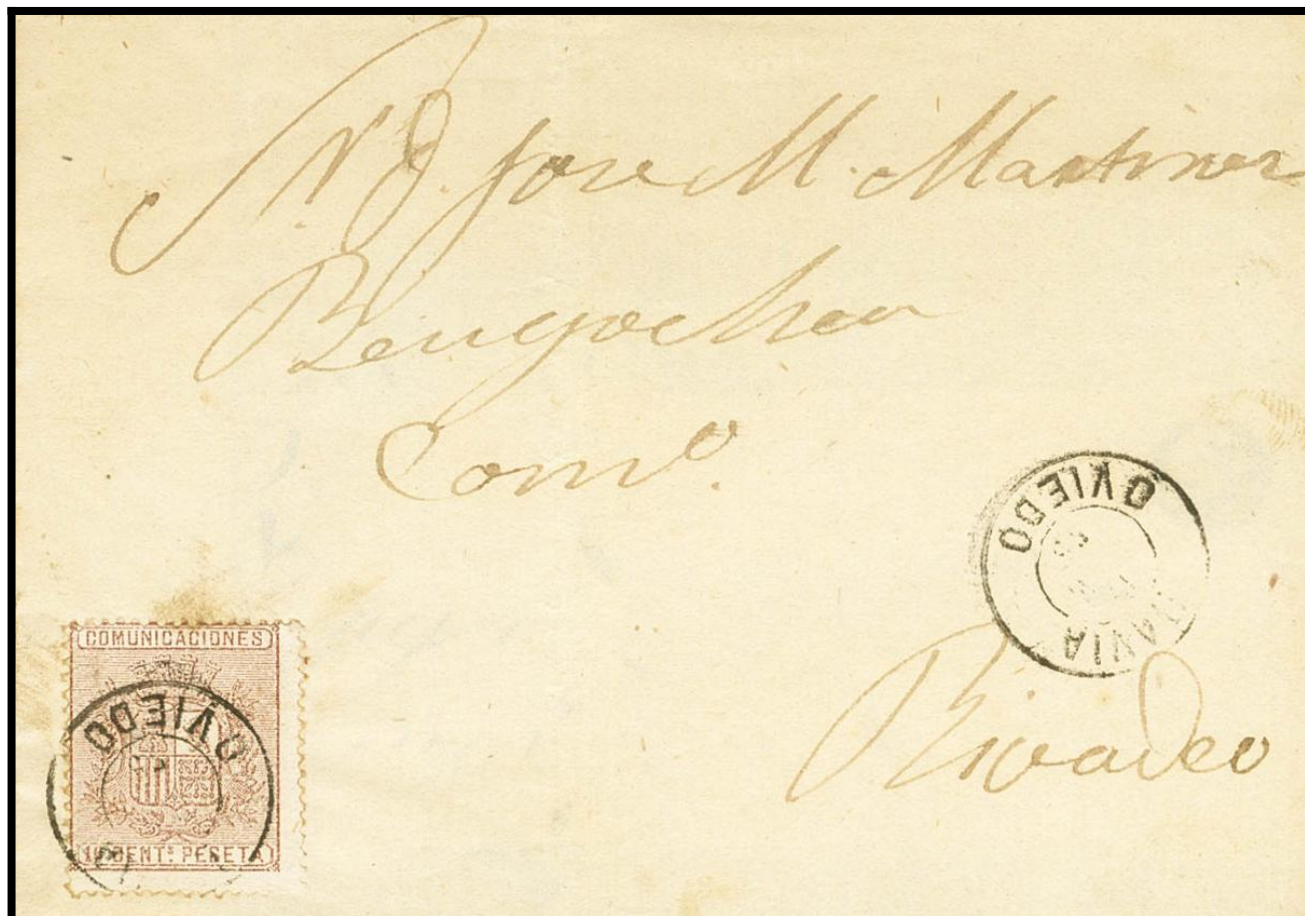 Sr. D. Jose M. Martinez
Bengochea
Com.º
OVIEDO
Rivadeo
COMUNICACIONES
OVIEDO
10 CENT.ˢ PESETA